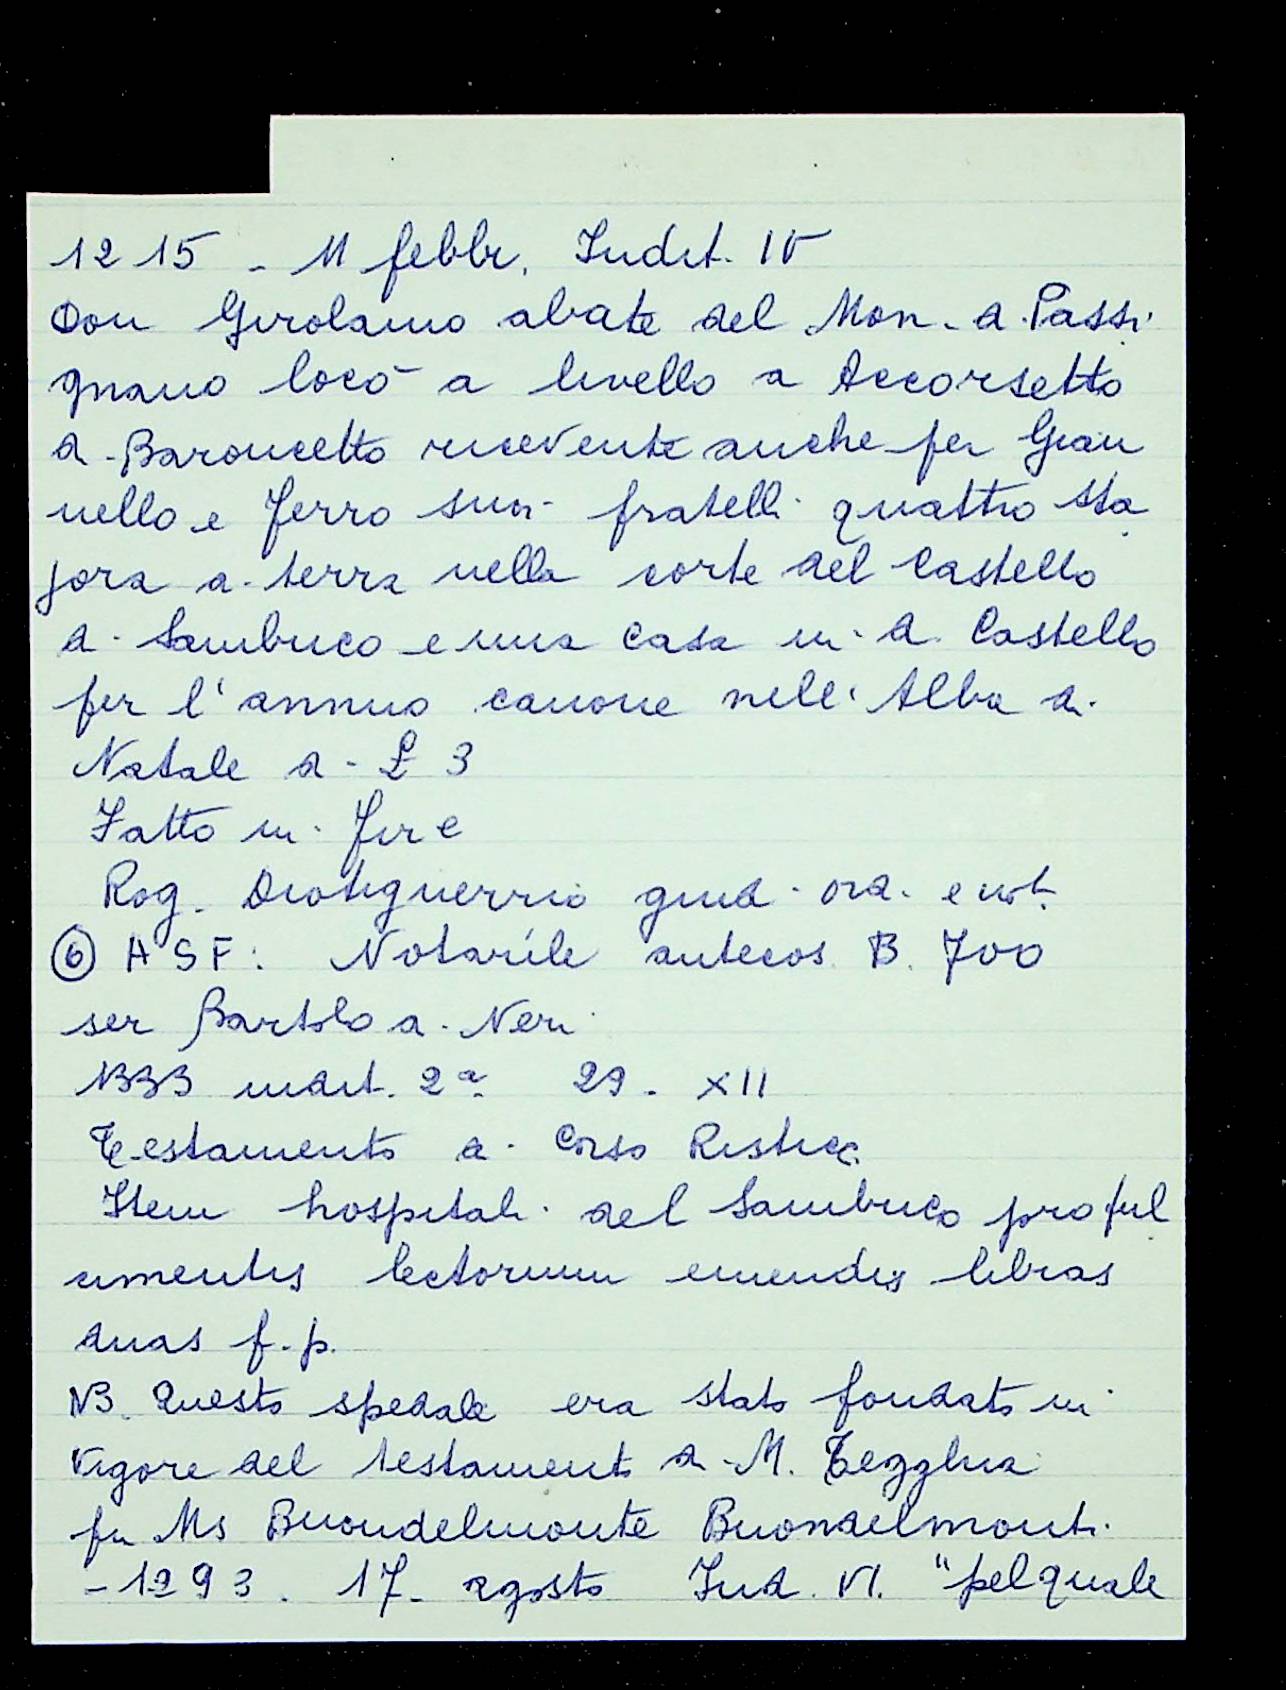 1215 - 11 febbr. Indit. IV
Don Girolamo abate del Mon. di Passi
gnano locò a livello a Accorsetto
di Baroncetto ricevente anche per Gian
nello e Ferro suoi fratelli quattro sta
jora di terra nella corte del Castello
di Sambuco e una casa in d. Castello
per l'annuo canone nell'Alba di
Natale di £ 3
Fatto in Fire
Rog. Diotiguerrio giud. ord. e not.
⑥ ASF. Notarile antecos. B. 700
ser Bartolo di Neri
1333 indit. 2ª 29. XII
Testamento di Corso Ristici
Item hospitali del Sambuco pro ful
cimentis lectorum emendis libras
duas f.p.
NB. Questo spedale era stato fondato in
vigore del testamento di M. Tegghia
fu Ms Buondelmonte Buondelmonti
- 1293. 17. agosto Ind. VI. "pel quale